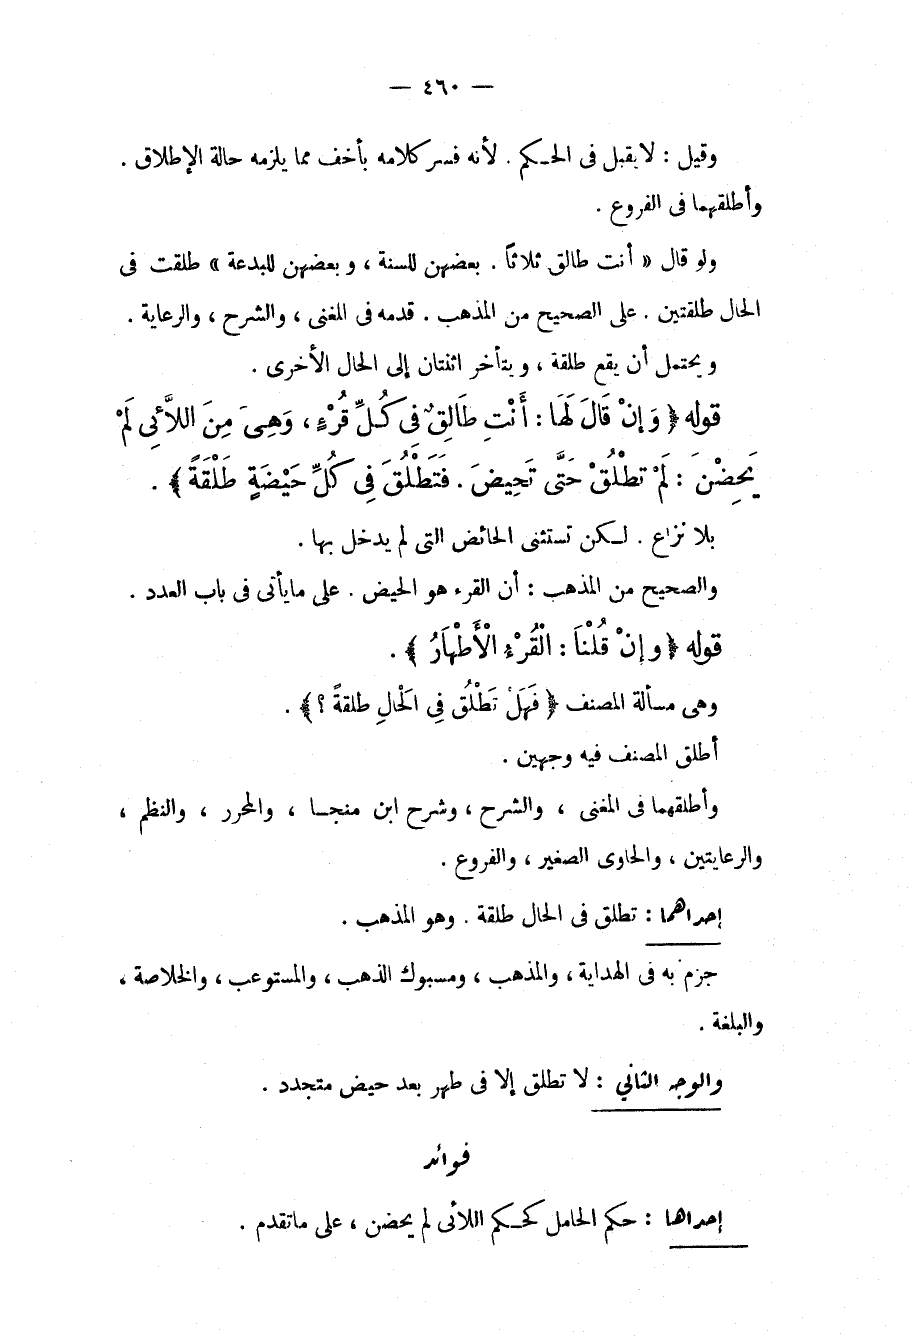 — ٤٦٠ —
وقيل : لا يقبل فى الحـكم . لأنه فسر كلامه بأخف مما يلزمه حالة الإطلاق .
وأطلقهما فى الفروع .
ولو قال « أنت طالق ثلاثاً . بعضهن للسنة ، وبعضهن للبدعة » طلقت فى
الحال طلقتين . على الصحيح من المذهب . قدمه فى المغنى ، والشرح ، والرعاية .
ويحتمل أن يقع طلقة ، ويتأخر اثنتان إلى الحال الأخرى .
قوله ﴿ وَإِنْ قَالَ لَهَا : أَنْتِ طَالِقٌ فِى كُلِّ قُرْءٍ ، وَهِىَ مِنَ اللاَّئِى لَمْ
يَحِضْنَ : لَمْ تَطْلُقْ حَتَّى تَحِيضَ . فَتَطْلُقَ فِى كُلِّ حَيْضَةٍ طَلْقَةً ﴾ .
بلا نزاع . لـكن تستثنى الحائض التى لم يدخل بها .
والصحيح من المذهب : أن القرء هو الحيض . على مايأتى فى باب العدد .
قوله ﴿ وَإِنْ قُلْنَا : الْقُرْءُ الْأَطْهَارُ ﴾ .
وهى مسألة المصنف ﴿ فَهَلْ تَطْلُق فِى الْحَالِ طلقةً ؟ ﴾ .
أطلق المصنف فيه وجهين .
وأطلقهما فى المغنى ، والشرح ، وشرح ابن منجـا ، والمحرر ، والنظم ،
والرعايتين ، والحاوى الصغير ، والفروع .
إحداهما : تطلق فى الحال طلقة . وهو المذهب .
جزم به فى الهداية ، والمذهب ، ومسبوك الذهب ، والمستوعب ، والخلاصة ،
والبلغة .
والوجه الثاني : لا تطلق إلا فى طهر بعد حيض متجدد .
فوائد
إحداها : حكم الحامل كحـكم اللائى لم يحضن ، على ماتقدم .